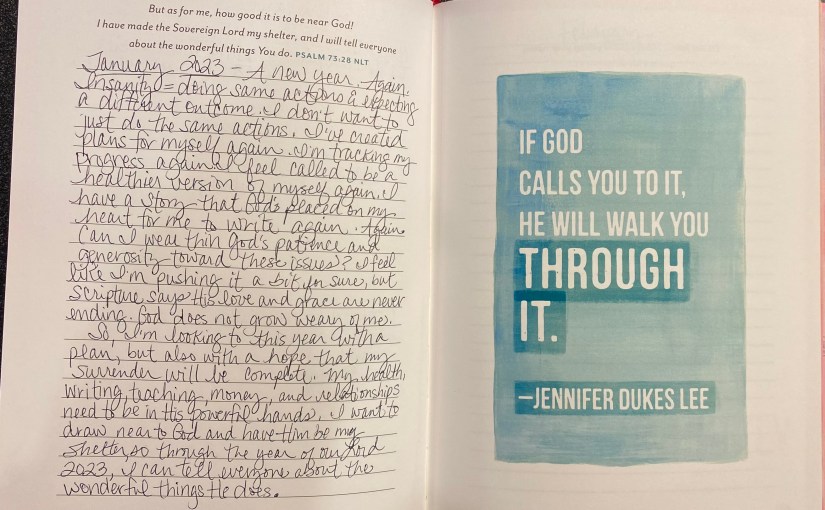 But as for me, how good it is to be near God!
I have made the Sovereign Lord my shelter, and I will tell everyone
about the wonderful things You do. PSALM 73:28 NLT
January 2023 - A new year. Again.
Insanity = doing same actions & expecting
a different outcome. I don't want to
just do the same actions. I've created
plans for myself again. I'm tracking my
progress again. I feel called to be a
healthier version of myself again. I
have a story that God's placed on my
heart for me to write again. Again.
Can I wear thin God's patience and
generosity toward these issues? I feel
like I'm pushing it a bit I'm sure, but
Scripture says His love and grace are never
ending. God does not grow weary of me.
So, I'm looking to this year with a
plan, but also with a hope that my
surrender will be complete. My health,
writing, teaching, money, and relationships
need to be in His powerful hands. I want to
draw near to God and have Him be my
shelter so through the year of our Lord
2023, I can tell everyone about the
wonderful things He does.
IF GOD
CALLS YOU TO IT,
HE WILL WALK YOU
THROUGH
IT.
—JENNIFER DUKES LEE